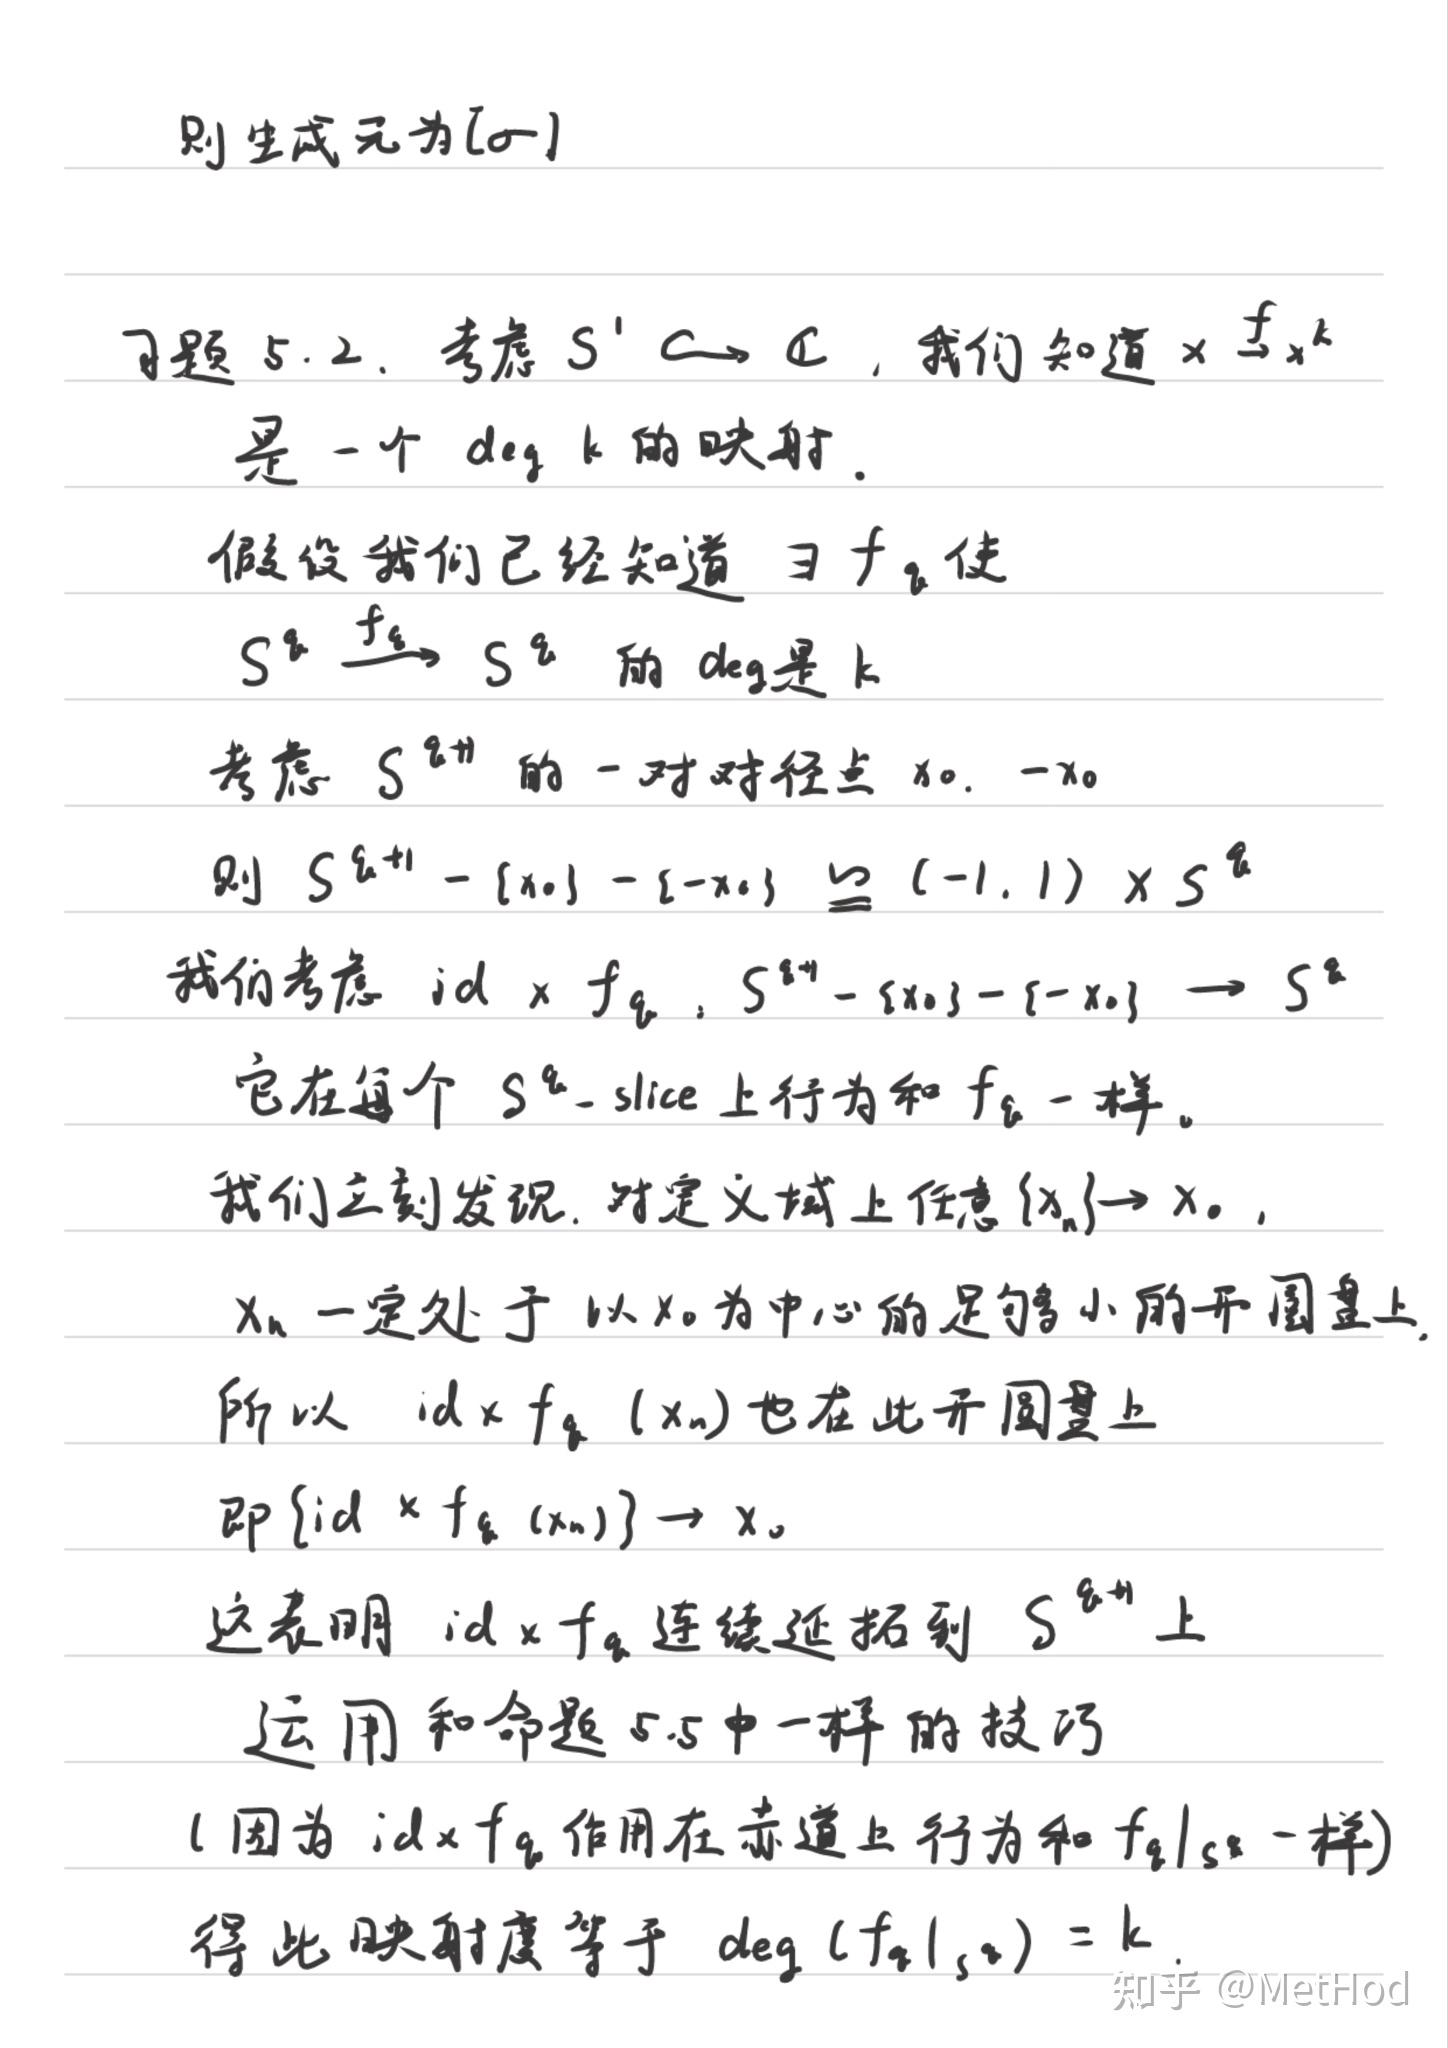 则生成元为[σ]
习题 5.2. 考虑 S¹ ↪ ℂ, 我们知道 x →^f x^k
是一个 deg k 的映射.
假设我们已经知道 ∃ f_q 使
S^q →^{f_q} S^q 的 deg是 k
考虑 S^{q+1} 的一对对径点 x₀. -x₀
则 S^{q+1} - {x₀} - {-x₀} ≌ (-1, 1) × S^q
我们考虑 id × f_q : S^{q+1} - {x₀} - {-x₀} → S^q
它在每个 S^q - slice 上行为和 f_q 一样。
我们立刻发现. 对定义域上任意{x_n}→ x₀,
x_n 一定处于 以 x₀ 为中心的足够小的开圆盘上.
所以 id × f_q (x_n) 也在此开圆盘上
即{id × f_q (x_n)} → x₀
这表明 id × f_q 连续延拓到 S^{q+1} 上
运用和命题 5.5 中一样的技巧
(因为 id × f_q 作用在赤道上行为和 f_q|_{S^q} 一样)
得此映射度等于 deg (f_q|_{S^q}) = k.
知乎 @MetHod